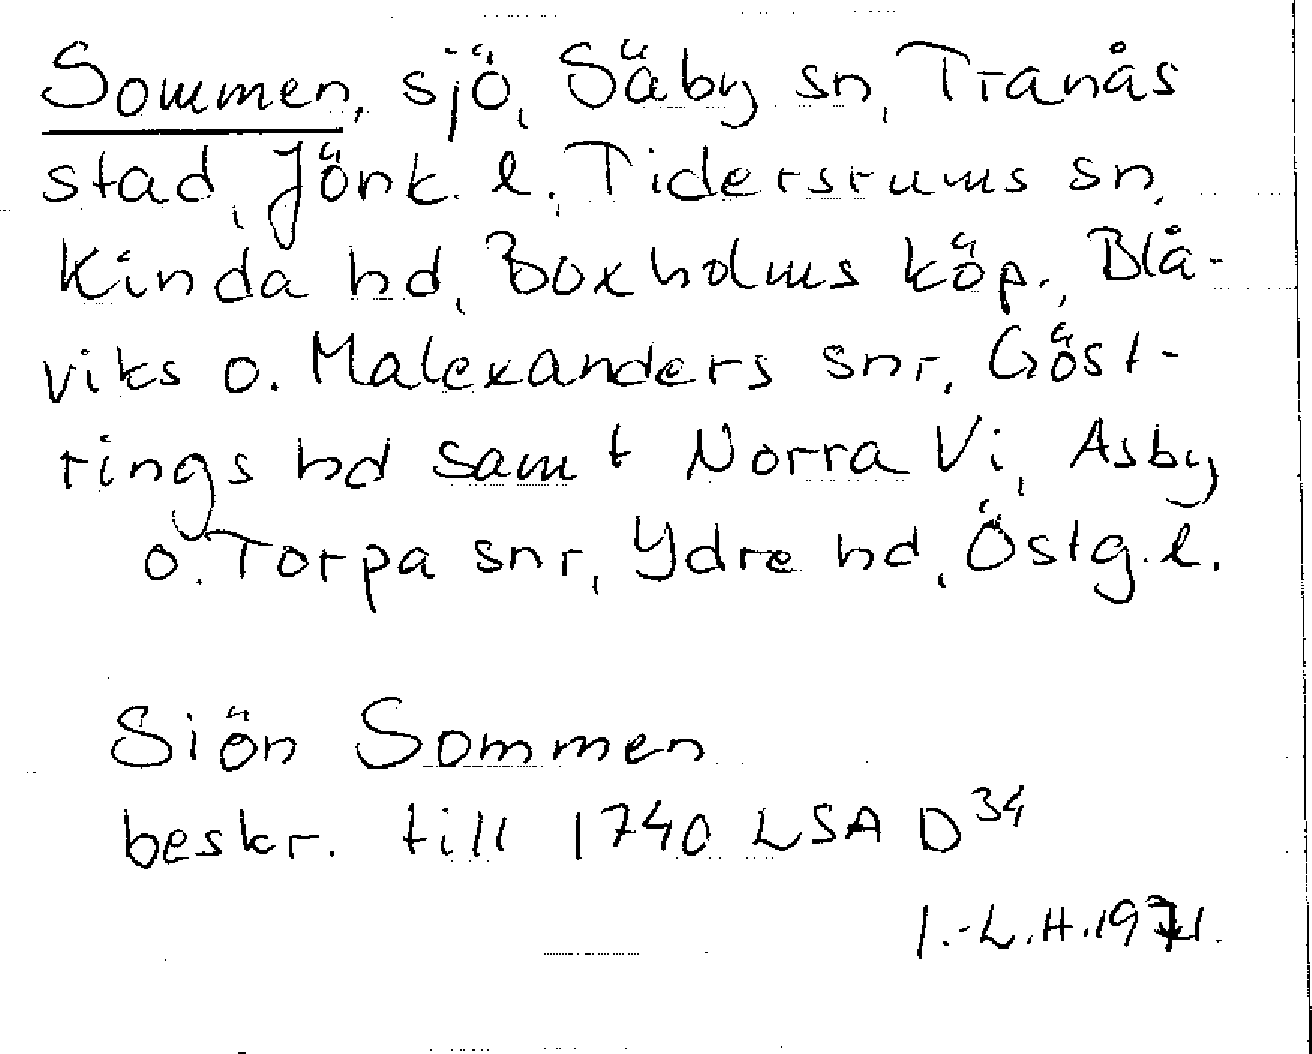 Sommen, sjö, Säby sn, Tranås
stad, Jönk. l. Tidersrums sn,
Kinda hd, Boxholms köp., Blå-
viks o. Malexanders snr, Göst-
rings hd samt Norra Vi, Asby
o. Torpa snr, Ydre hd, Östg. l.
Siön Sommen
beskr. till 1740 LSA D34
I.-L.H. 1971.